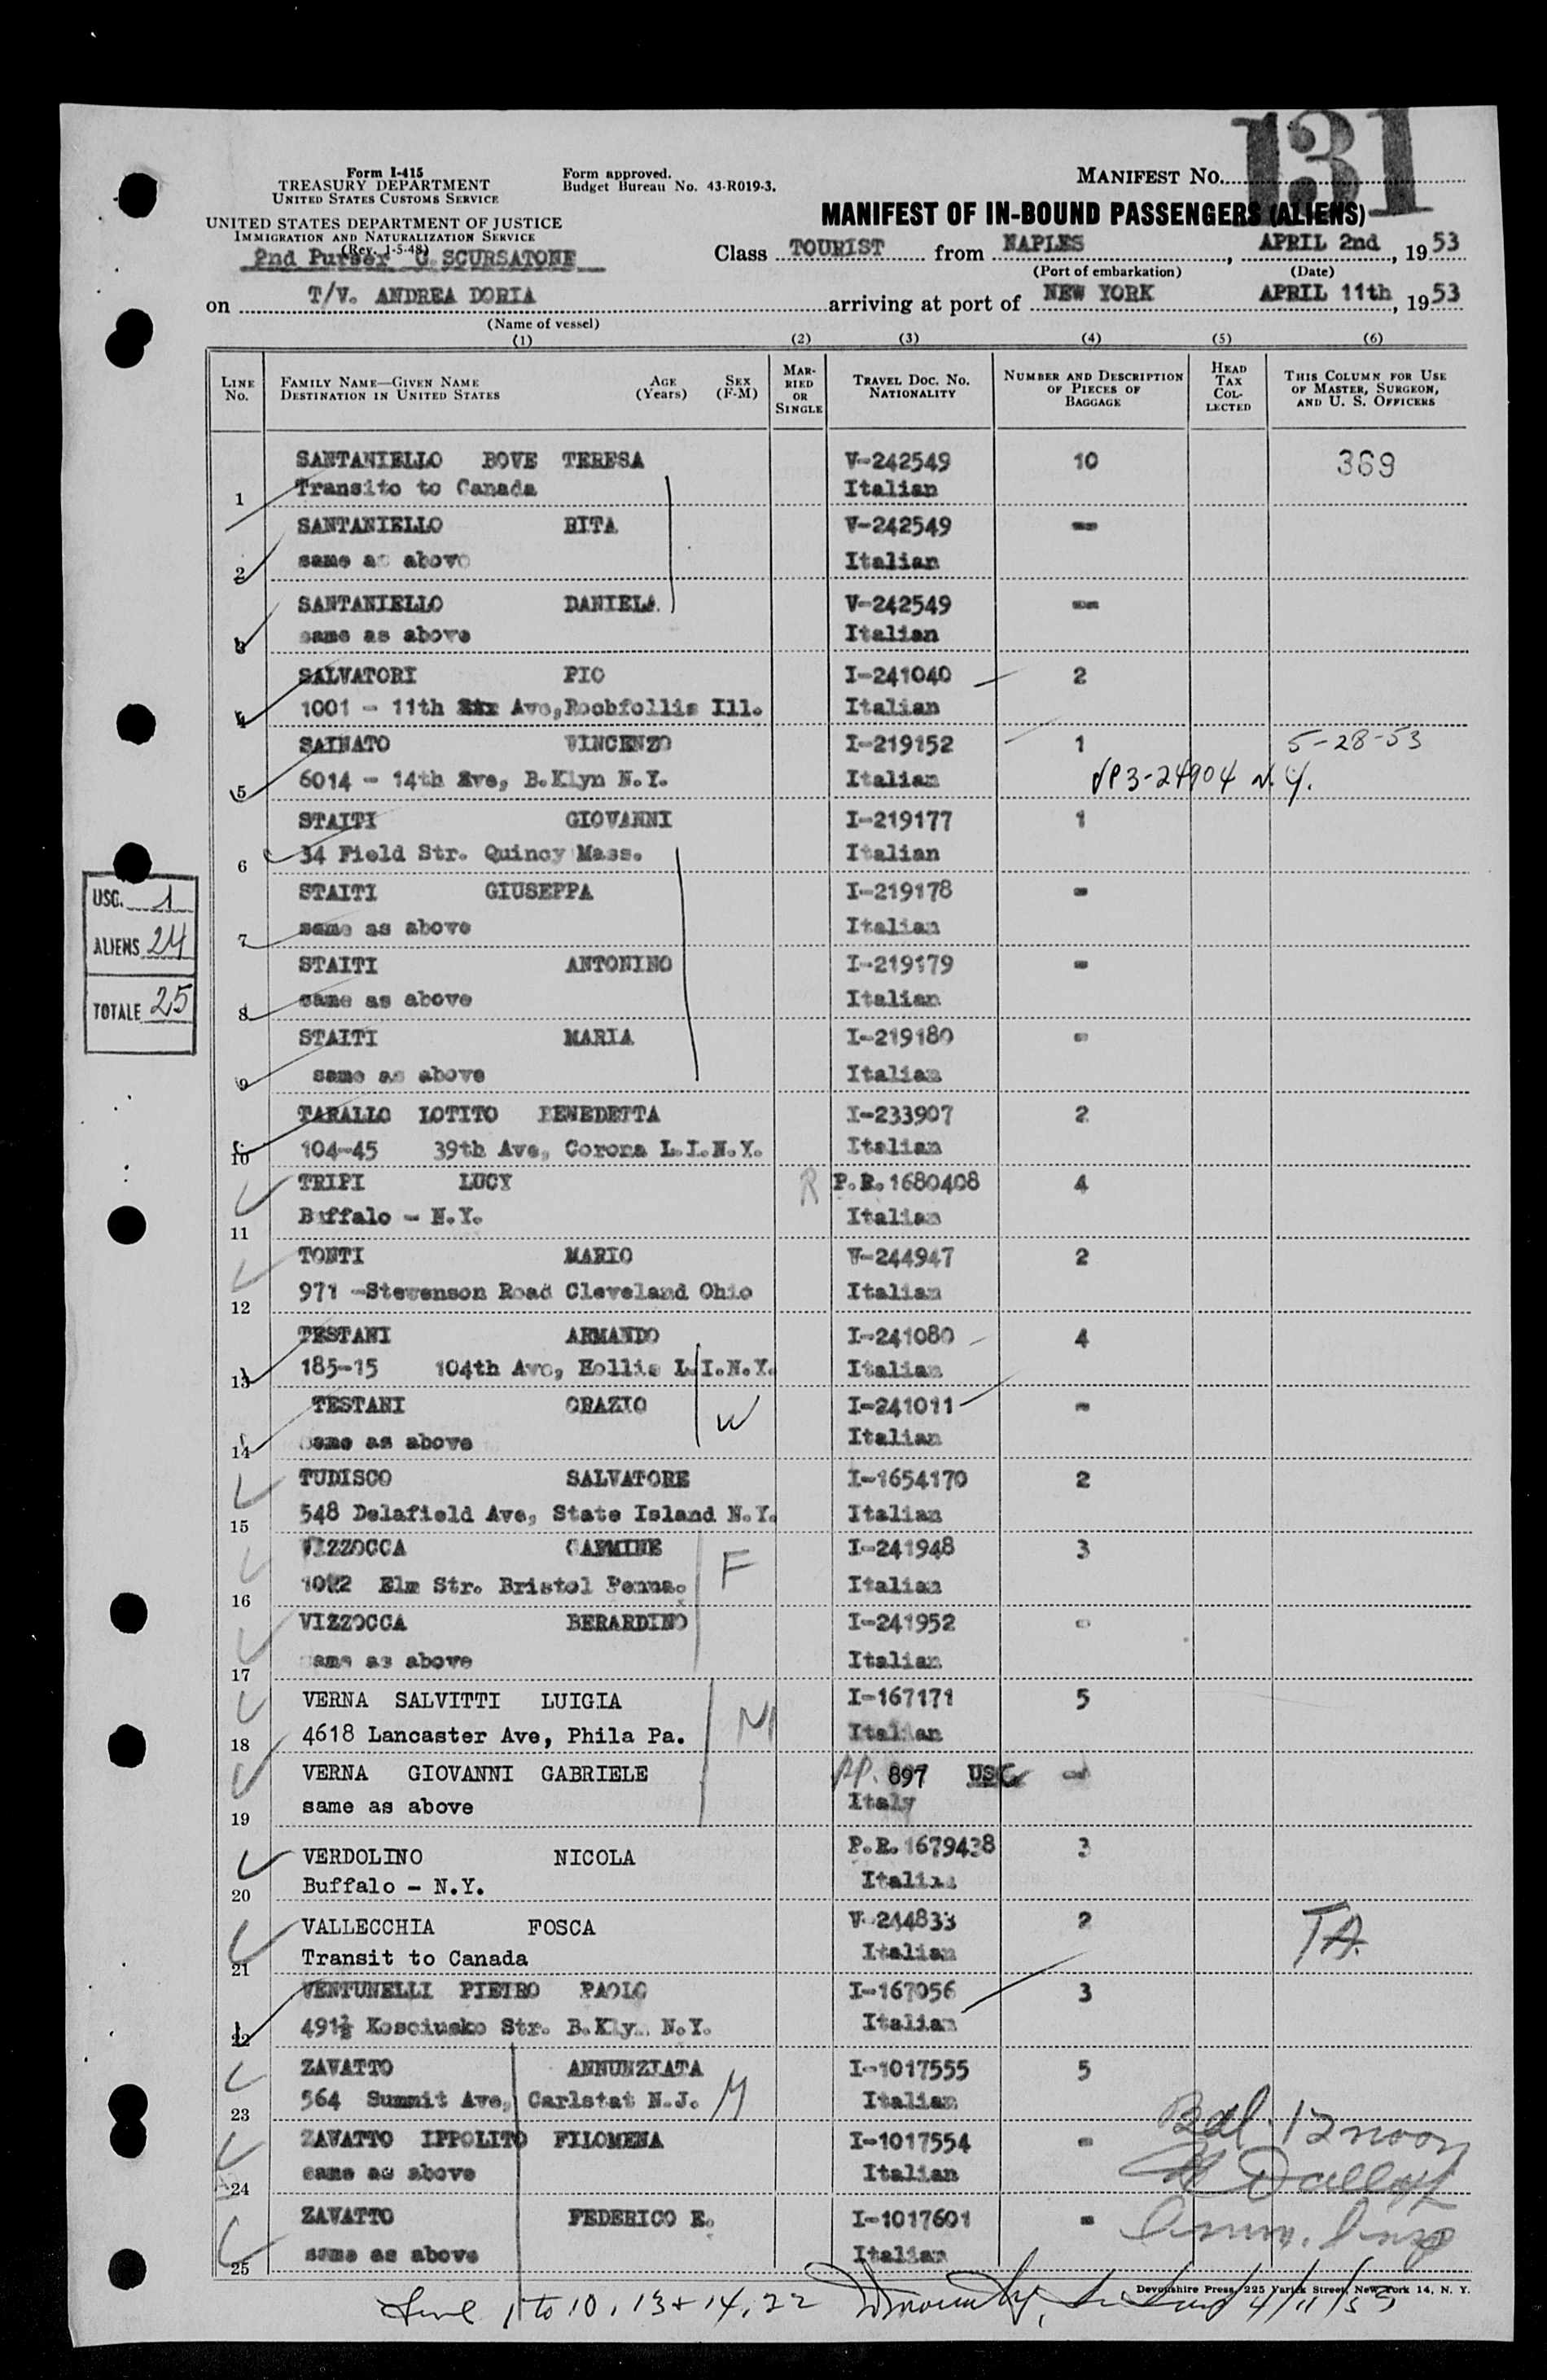 131
Form I-415
TREASURY DEPARTMENT
UNITED STATES CUSTOMS SERVICE
UNITED STATES DEPARTMENT OF JUSTICE
IMMIGRATION AND NATURALIZATION SERVICE
(Rev. 1-5-48)
Form approved.
Budget Bureau No. 43-R019-3.
MANIFEST NO.
MANIFEST OF IN-BOUND PASSENGERS (ALIENS)
2nd Purser G SCURSATONE
Class TOURIST from NAPLES, APRIL 2nd, 1953
(Port of embarkation) (Date)
on T/V. ANDREA DORIA arriving at port of NEW YORK APRIL 11th, 1953
(Name of vessel)
(1) (2) (3) (4) (5) (6)
LINE NO.
FAMILY NAME—GIVEN NAME
DESTINATION IN UNITED STATES
AGE (Years)
SEX (F-M)
MARRIED OR SINGLE
TRAVEL DOC. NO. NATIONALITY
NUMBER AND DESCRIPTION OF PIECES OF BAGGAGE
HEAD TAX COLLECTED
THIS COLUMN FOR USE OF MASTER, SURGEON, AND U. S. OFFICERS
SANTANIELLO BOVE TERESA V-242549 10 369
1 Transito to Canada Italian
SANTANIELLO RITA V-242549 --
2 same as above Italian
SANTANIELLO DANIELA V-242549 --
3 same as above Italian
SALVATORI PIO I-241040 2
4 1001 - 11th Ave, Rochfollis Ill. Italian
SAINATO VINCENZO I-219152 1 5-28-53
5 6014 - 14th Ave, B.Klyn N.Y. Italian VP3-24904 N.Y.
STAITI GIOVANNI I-219177 1
6 34 Field Str. Quincy Mass. Italian
STAITI GIUSEPPA I-219178 -
7 same as above Italian
STAITI ANTONINO I-219179 -
8 same as above Italian
STAITI MARIA I-219180 -
9 same as above Italian
TARALLO LOTITO BENEDETTA I-233907 2
10 104-45 39th Ave, Corona L.I.N.Y. Italian
TRIPI LUCY R P.R. 1680408 4
11 Buffalo - N.Y. Italian
TONTI MARIO V-244947 2
12 971 -Stevenson Road Cleveland Ohio Italian
TESTANI ARMANDO I-241080 4
13 185-15 104th Ave, Hollis L.I.N.Y. Italian
TESTANI ORAZIO W I-241011 -
14 same as above Italian
TUDISCO SALVATORE I-1654170 2
15 548 Delafield Ave, State Island N.Y. Italian
VIZZOCCA CARMINE F I-241948 3
16 1022 Elm Str. Bristol Penna. Italian
VIZZOCCA BERARDINO I-241952 -
17 same as above Italian
VERNA SALVITTI LUIGIA M I-167171 5
18 4618 Lancaster Ave, Phila Pa. Italian
VERNA GIOVANNI GABRIELE PP. 897 USC -
19 same as above Italy
VERDOLINO NICOLA P.R. 1679438 3
20 Buffalo - N.Y. Italian
VALLECCHIA FOSCA V-244833 2 TA
21 Transit to Canada Italian
VENTUNELLI PIETRO PAOLO I-167056 3
22 491½ Kosciusko Str. B.Klyn N.Y. Italian
ZAVATTO ANNUNZIATA I-1017555 5
23 564 Summit Ave, Carlstat N.J. M Italian
ZAVATTO IPPOLITO FILOMENA I-1017554 -
24 same as above Italian
ZAVATTO FEDERICO E. I-1017601 -
25 same as above Italian
USC. 1
ALIENS 24
TOTALE 25
Bal. 12 noon
Devonshire Press, 225 Varick Street, New York 14, N. Y.
1 to 10, 13 + 14, 22 4/11/53